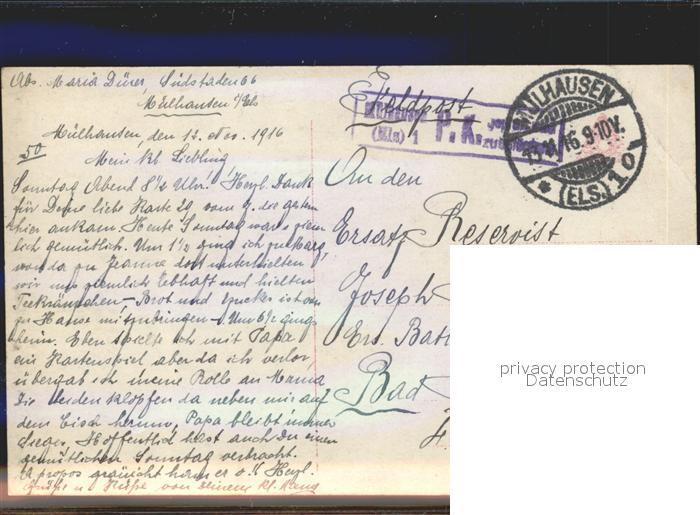 Abs. Maria Dürer, Südstaden 66
Mülhausen i/Els
Mülhausen, den 12. Nov. 1916
50
Mein kl. Liebling
Sonntag Abend 8½ Uhr! Herzl. Dank
für Deine liebe Karte 29 vom 9. die gestern
hier ankam. Heute Sonntag war's ziem
lich gemütlich. Um 1½ ging ich
von da zu Jeanne dort unterhielten
wir uns ziemlich lebhaft und hielten
Teekränzchen - Brot und Zucker ist von
zu Hause mitzubringen -. Um 6½ gings
heim. Eben spielte ich mit Papa
ein Kartenspiel aber da ich verlor,
übergab ich meine Rolle an Mama
Die Beiden klopfen da neben mir auf
dem Tisch herum, Papa bleibt immer
Sieger. Hoffentlich hast auch Du einen
gemütlichen Sonntag verbracht.
A propos
Grüße u. Küsse von Deinem kl.
Feldpost
(Els) 1 P. K.
MÜLHAUSEN
13.11.16. 9-10V.
* (ELS.) 1 0
An den
Ersatz Reservist
Joseph
Ers. Batl
Bad
privacy protection
Datenschutz